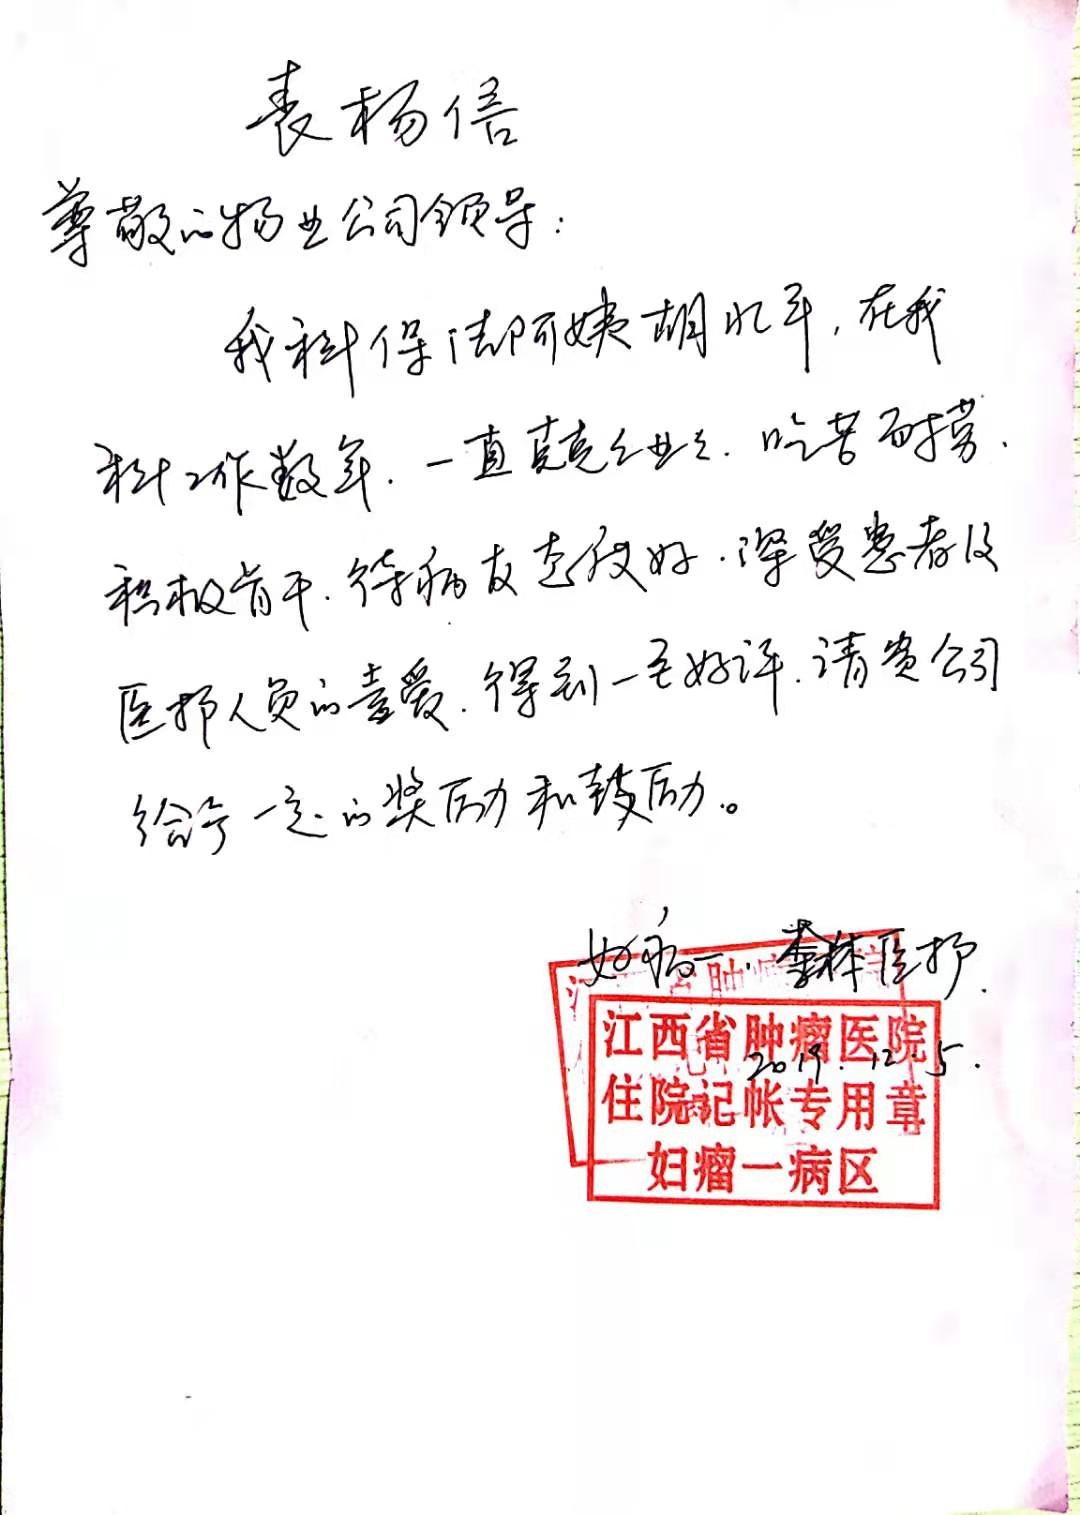 表扬信
尊敬的物业公司领导:
我科保洁阿姨胡水平,在我
科工作数年,一直兢兢业业,吃苦耐劳,
积极肯干,待病友态度好,深受患者及
医护人员的喜爱,得到一至好评,请贵公司
给予一定的奖励和鼓励。
妇瘤一,全体医护.
2019.12.5.
江西省肿瘤医院
住院记帐专用章
妇瘤一病区